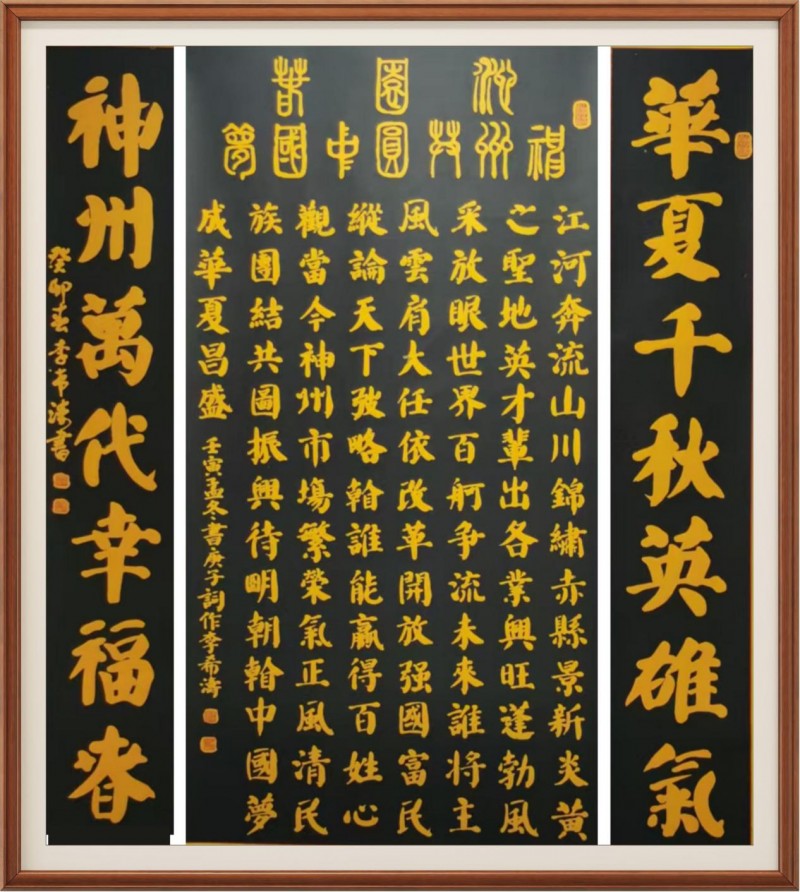 華夏千秋英雄氣
沁園春
神州共圓中國夢
江河奔流山川錦繡赤縣景新炎黃
之聖地英才輩出各業興旺蓬勃風
采放眼世界百舸爭流未來誰將主
風雲肩大任依改革開放强國富民
縱論天下弢略看誰能贏得百姓心
觀當今神州市場繁榮氣正風清民
族團結共圖振興待明朝看中國夢
成華夏昌盛 壬寅孟冬書庚子詞作李希濤
神州萬代幸福春
癸卯春李希濤書